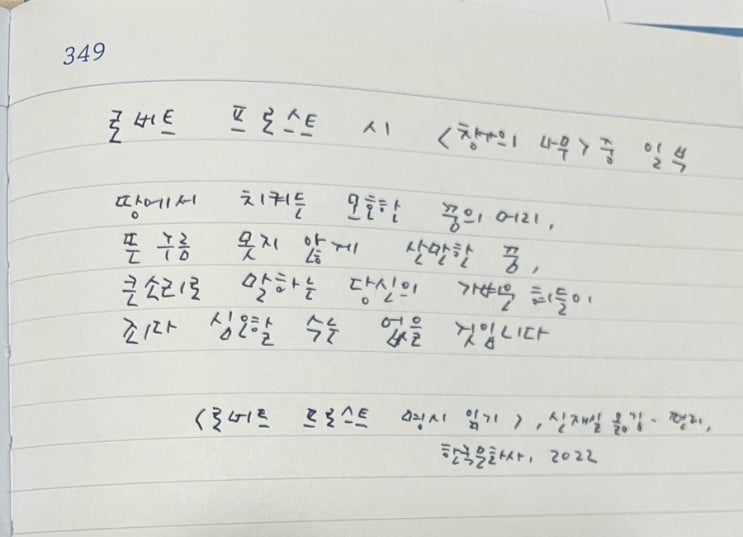 349
로버트 프로스트 시 <창가의 나무> 중 일부
땅에서 치켜든 모호한 꿈의 머리,
뜬 구름 못지 않게 산만한 꿈,
큰소리로 말하는 당신의 가벼운 혀들이
죄다 심오할 수는 없을 것입니다
<로버트 프로스트 명시 읽기>, 신재실 옮김·편저,
한국문화사, 2022